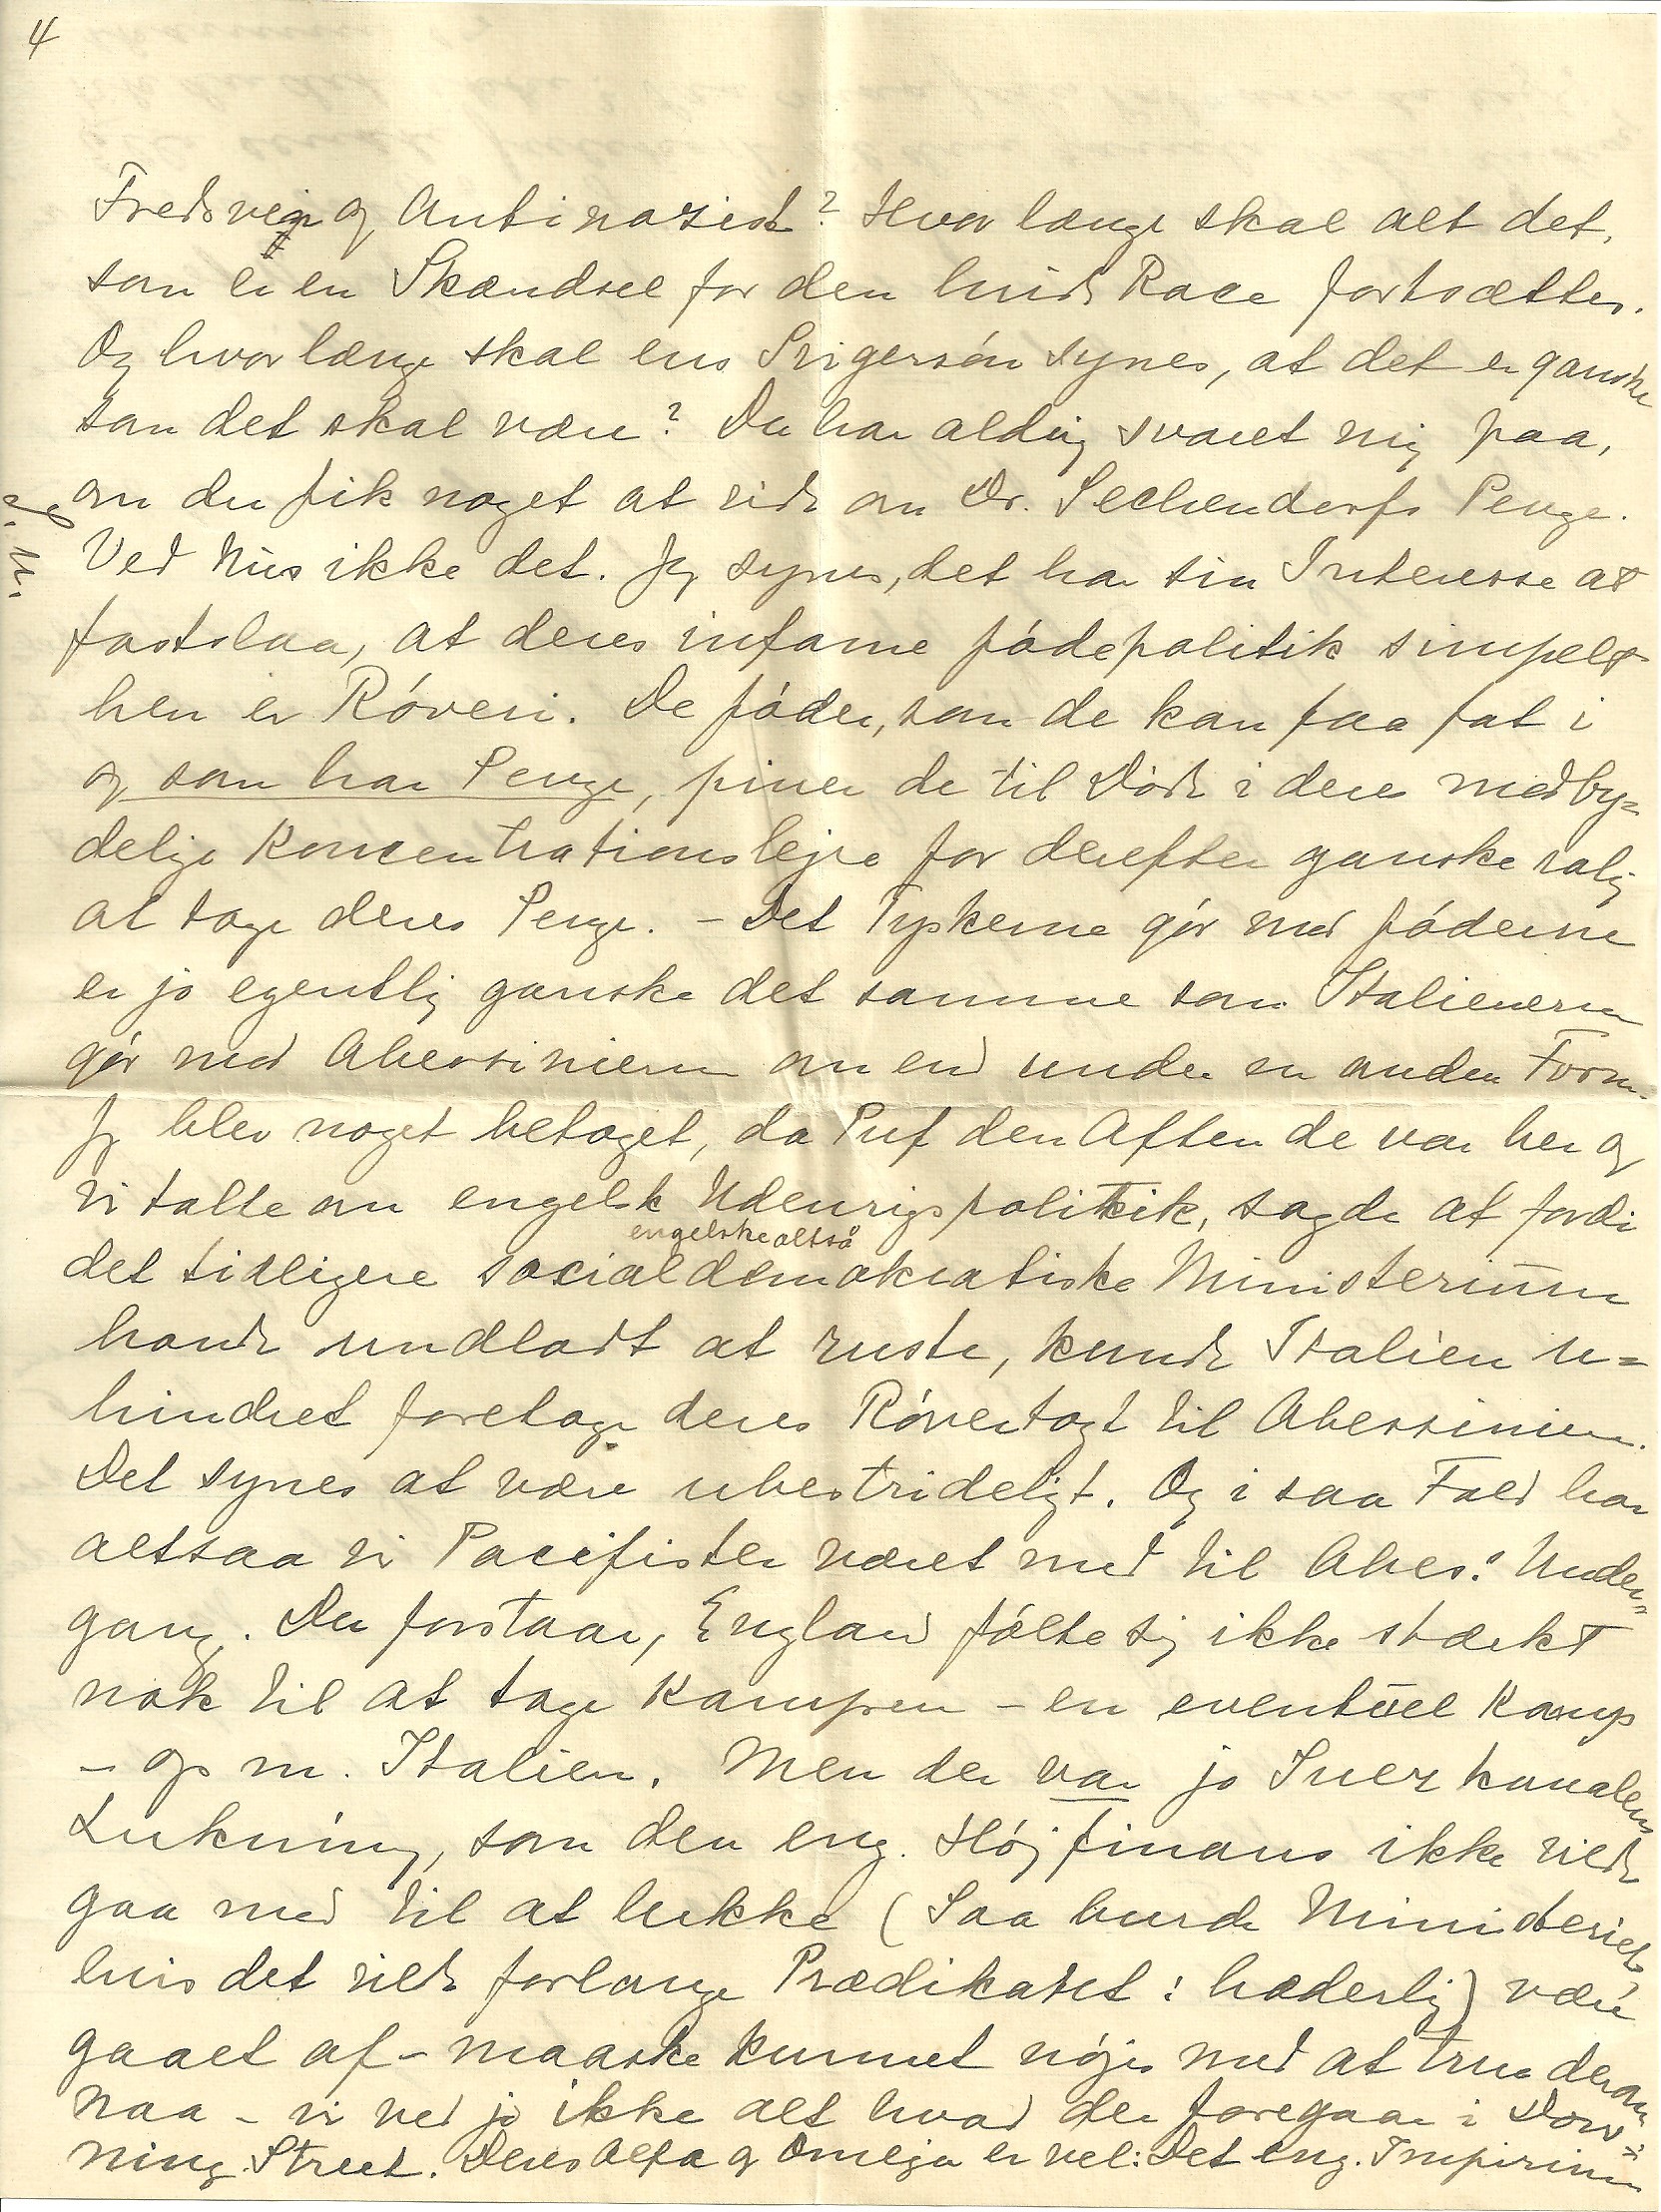 4
Fredsven og Antinazist? Hvor længe skal alt det,
som er en Skændsel for den hvide Race fortsættes.
Og hvor længe skal ens Svigersøn synes, at det er ganske
som det skal være? Du har aldrig svaret mig paa,
om du fik noget at vide om Dr. Seckendorfs Penge.
Ved Nus ikke det. Jeg synes, det har sin Interesse at
fastslaa, at deres infame Jødepolitik simpelt
hen er Røveri. De Jøder, som de kan faa fat i
og som har Penge, piner de til Døde i deres modby=
delige Koncentrationslejre for derefter ganske rolig
at tage deres Penge. – Det Tyskerne gør med Jøderne
er jo egentlig ganske det samme som Italienerne
gør med Abessinierne om end under en anden Form.
Jeg blev noget betaget, da Puf den Aften de var her og
vi talte om engelsk Udenrigspolitik, sagde at fordi
engelske altså
det tidligere socialdemokratiske Ministerium
havde undladt at ruste, kunde Italien u=
hindret foretage deres Røvertogt til Abessinien.
Det synes at være ubestrideligt. Og i saa Fald har
altsaa vi Pacifister været med til Abes.s Under=
gang. Du forstaar, England følte sig ikke stærkt
nok til at tage Kampen – en eventuel Kamp
– op m. Italien. Men der var jo Suez kanalens
Lukning, som den eng. Højfinans ikke vilde
gaa med til at lukke (Saa burde Ministeriet,
hvis det vilde forlange Prædikatet: hæderlig) være
gaaet af – maaske kunnet nøjes med at true der
maa – vi ved jo ikke alt hvad der foregaar i Dow=
ning. Street. Deres Alfa og Omega er vel: Det eng. Imperium